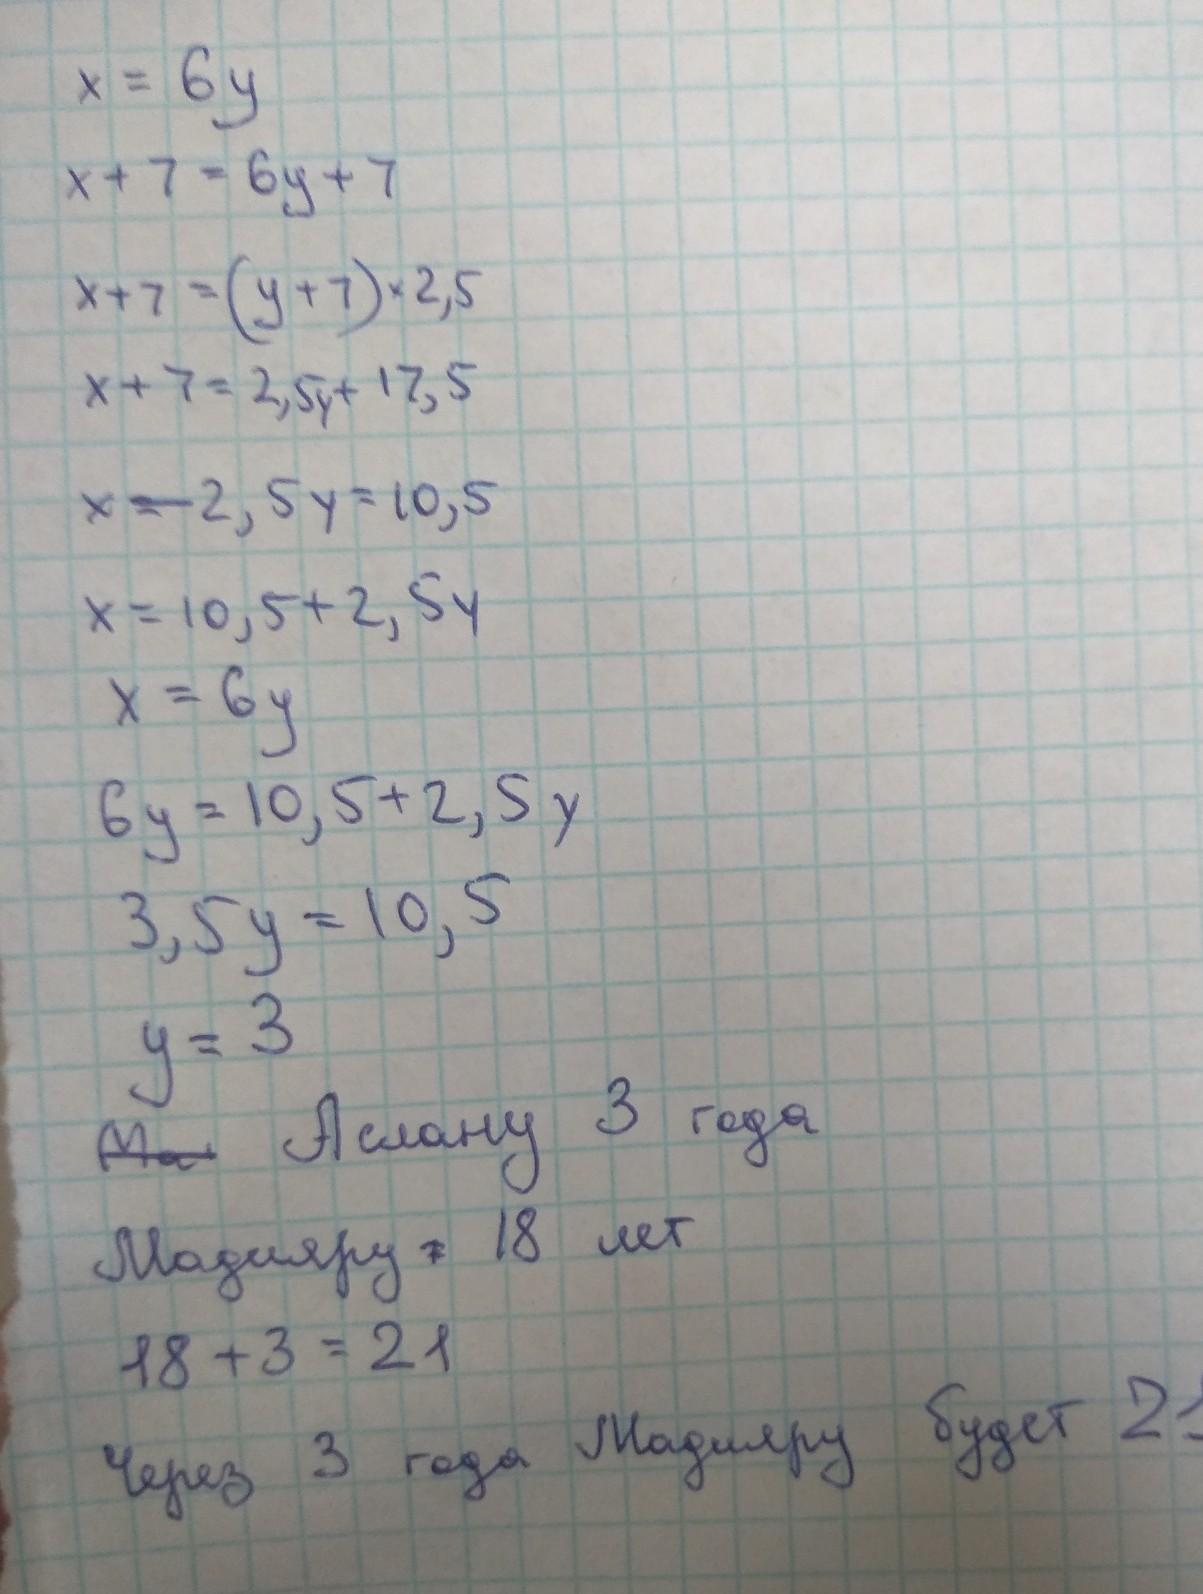 x = 6y
x + 7 = 6y + 7
x + 7 = (y + 7) × 2,5
x + 7 = 2,5y + 17,5
x - 2,5y = 10,5
x = 10,5 + 2,5y
x = 6y
6y = 10,5 + 2,5y
3,5y = 10,5
y = 3
Ма Аслану 3 года
Мадияру = 18 лет
18 + 3 = 21
Через 3 года Мадияру будет 21